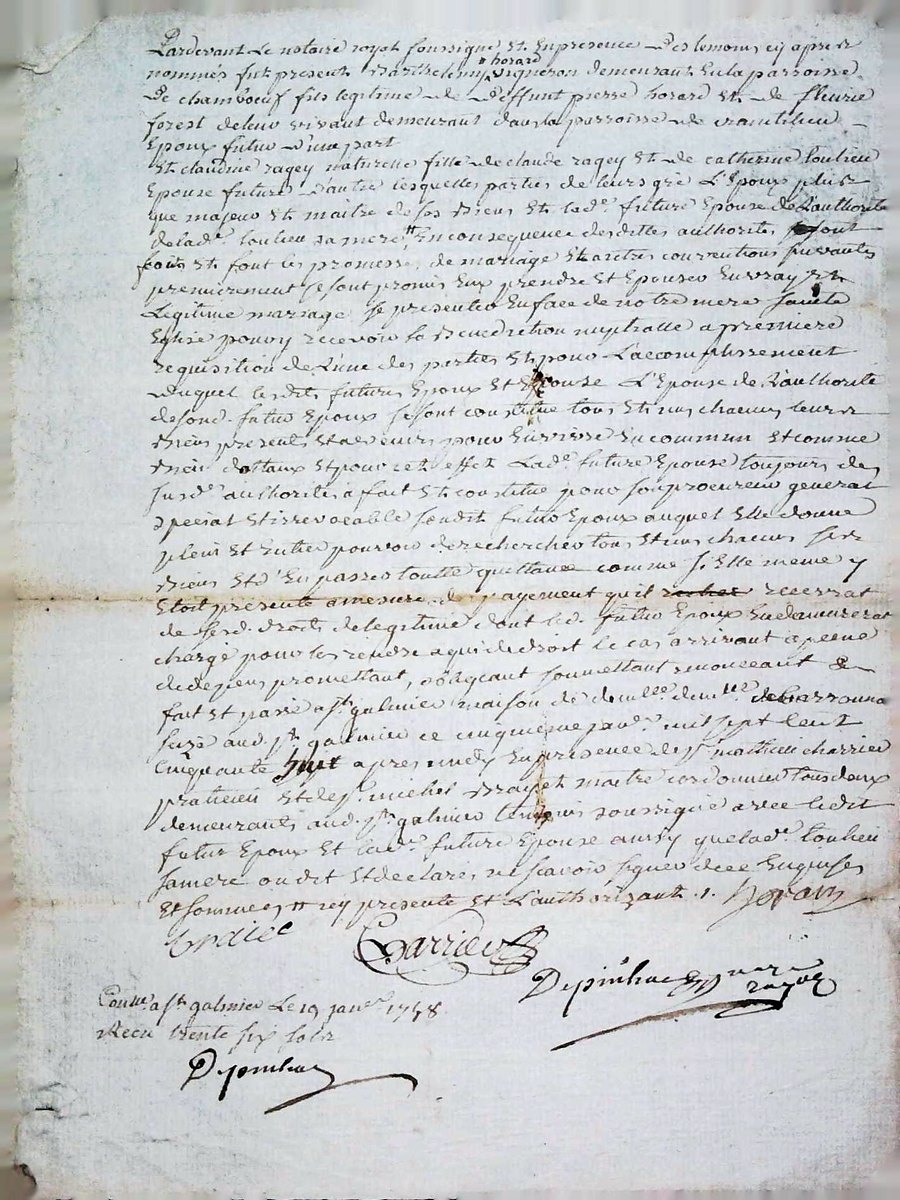 Pardevant Le notaire royal soussigné Et En presence Des temoins cy apres
horard
nommés fut present Barthelemy vigneron demeurant En la parroisse
De chambœuf fils legitime De Deffunt pierre horard Et De fleurie
forest de leur vivant demeurant dans la parroisse de
Epoux futur d'une part
Et claudine ragey naturelle fille de claude ragey Et de catherine toulieu
Epouse future d'autre lesquelles parties de leurs gré L'Epoux plus
que majeur Et maitre de ses Biens Et lad.e future Epouse de L'authorité
de lad.e toulieu sa mere tt En consequence desdittes authorités se sont
Et font les promesses de mariage Et autres conventions suivantes
premierement se sont promis Eux prendre Et Epouser En vray Et
Legitime mariage se presenter En face de notre mere sainte
Eglise pour y recevoir la Benediction nuptialle a premiere
requisition de L'une des parties Et pour L'accomplissement
Duquel lesdits futurs Epoux Et Epouse L'Epouse de L'authorité
de sond. futur Epoux se sont constitué tous Et uns chacuns leurs
Biens presents Et advenirs pour En vivre En commun Et comme
Bien dottaux Et pour cet effet Lad.e future Epouse toujours de
susd.e authorité a fait Et constitué pour son procureur general
special Et irrevocable sondit futur Epoux auquel Elle donne
plein Et Entier pouvoir de rechercher tous Et uns chacuns ses
Biens Et d'En passer toutte quittance comme si Elle meme y
Etoit presente a mesure de payement qu'il recevrat
de sesd. droits de legitime dont led. futur Epoux En demeurerat
chargé pour les rendre a qui de droit le cas arrivant a peine
de depens promettant, obligeant soumettant renonceant
fait Et passé a St galmier maison de
aud. St galmier ce cinquieme janv.r mil sept Cent
Cinquante huit apres midy En presence de Sr mathieu charrier
praticien Et de Sr michel maitre cordonnier tous deux
demeurants aud. St galmier temoins soussigné avec ledit
futur Epoux Et lad.e future Epouse aussy que lad.e toulieu
sa mere ont dit Et declaré ne scavoir signer de ce Enquises
Et sommées tt icy presente Et L'authorizant ./.
Charrier
Contr.lé a St galmier Le 19 janv.er 1758
Recu trente six sols